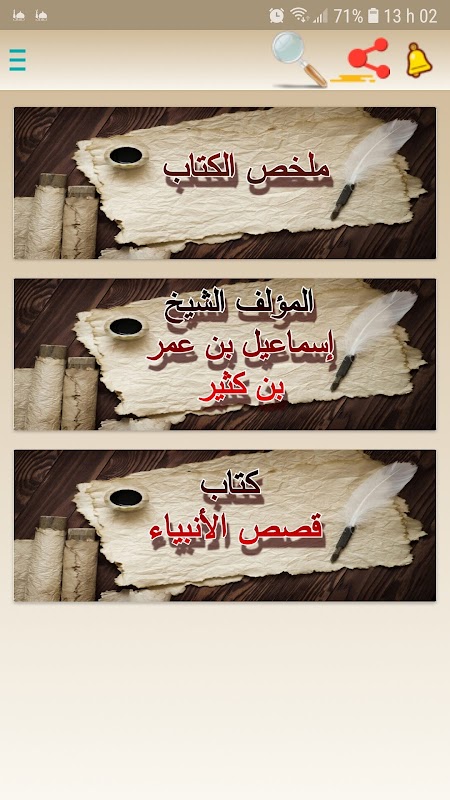 71% 13 h 02
ملخص الكتاب
المؤلف الشيخ
إسماعيل بن عمر
بن كثير
كتاب
قصص الأنبياء